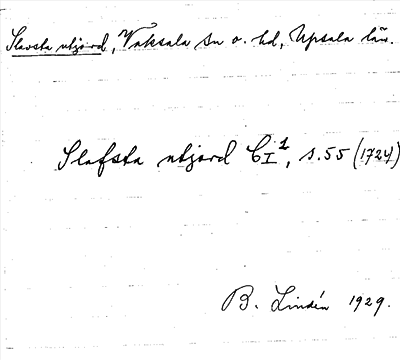 Slavsta utjord, Vaksala sn o. hd, Upsala län.
Slafsta utjord CI¹, s. 55 (1724)
B. Lindén 1929.